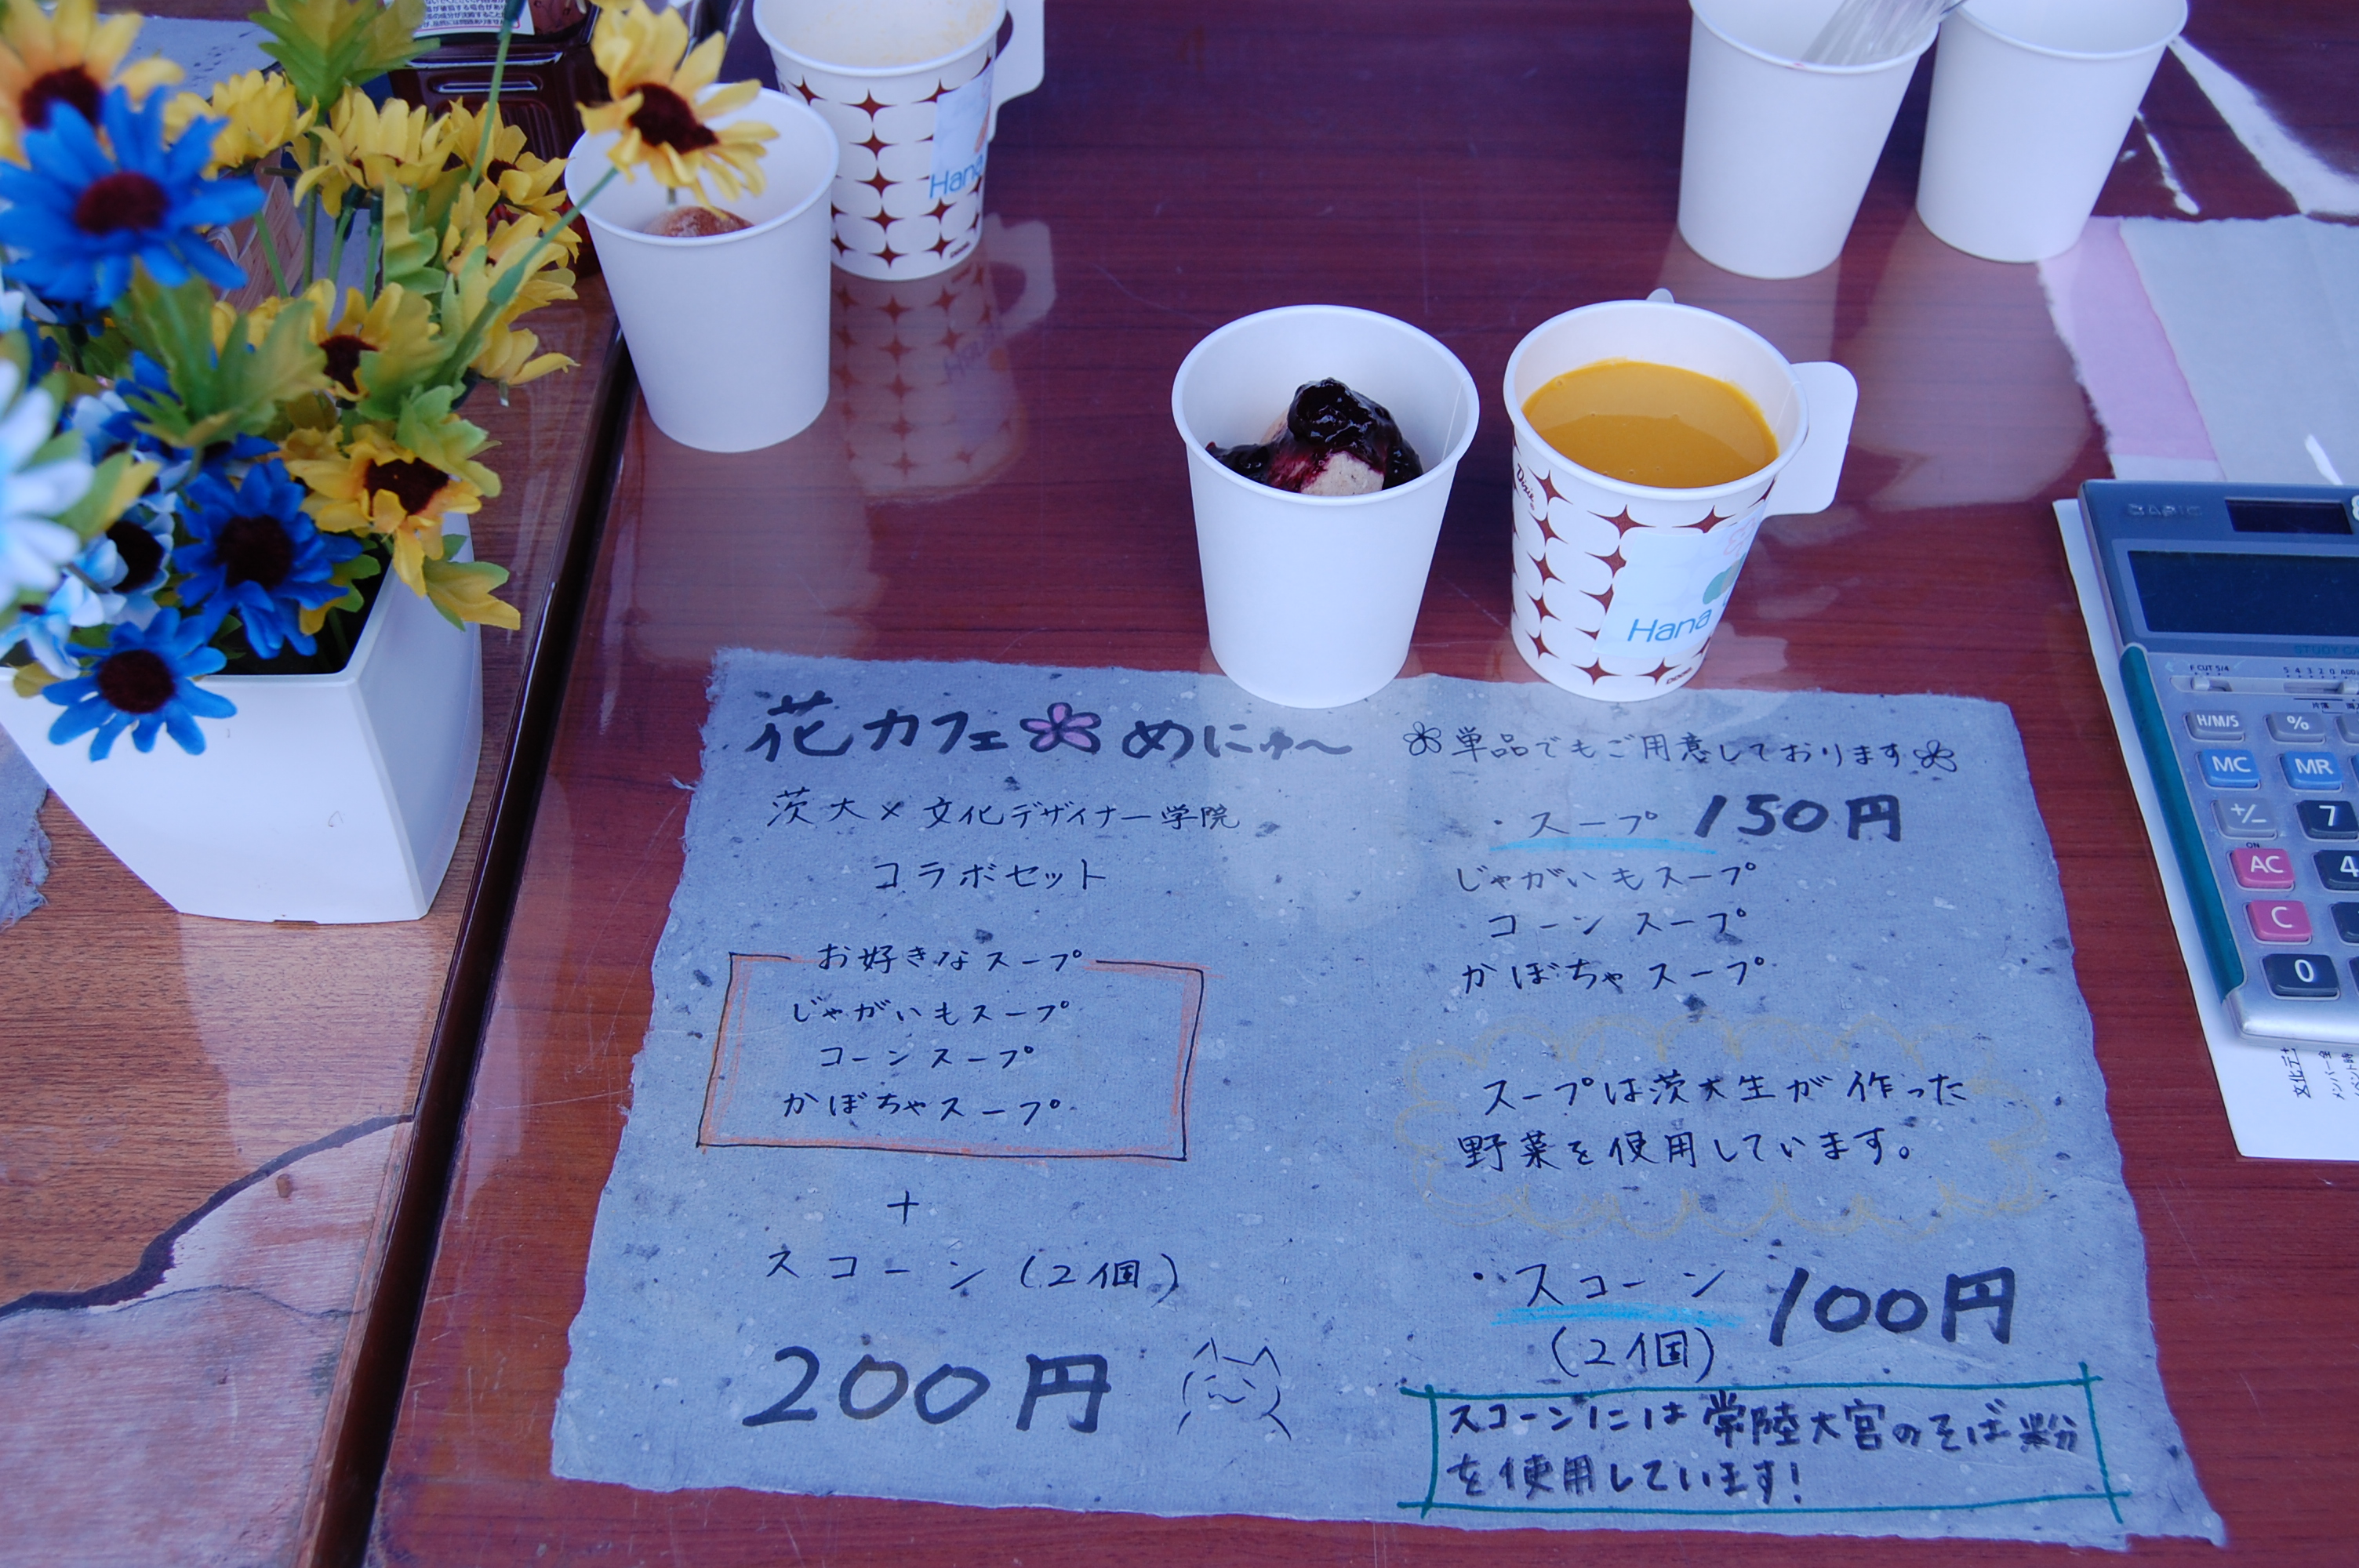 花カフェ めにゅ〜
茨大×文化デザイナー学院
コラボセット
お好きなスープ
じゃがいもスープ
コーンスープ
かぼちゃスープ
+
スコーン(2個)
200円
単品でもご用意しております
・スープ 150円
じゃがいもスープ
コーンスープ
かぼちゃスープ
スープは茨大生が作った
野菜を使用しています。
・スコーン 100円
(2個)
スコーンには常陸大宮のそば粉
を使用しています!
Hana
Hana
Dixie
H/M/S %
MC MR
+/- 7
ON
AC 4
C
0